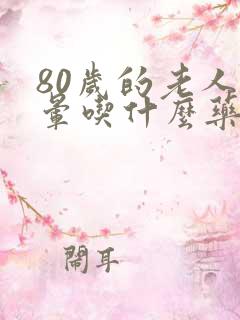 80歲的老人
暈喫什麼藥
鬧耳